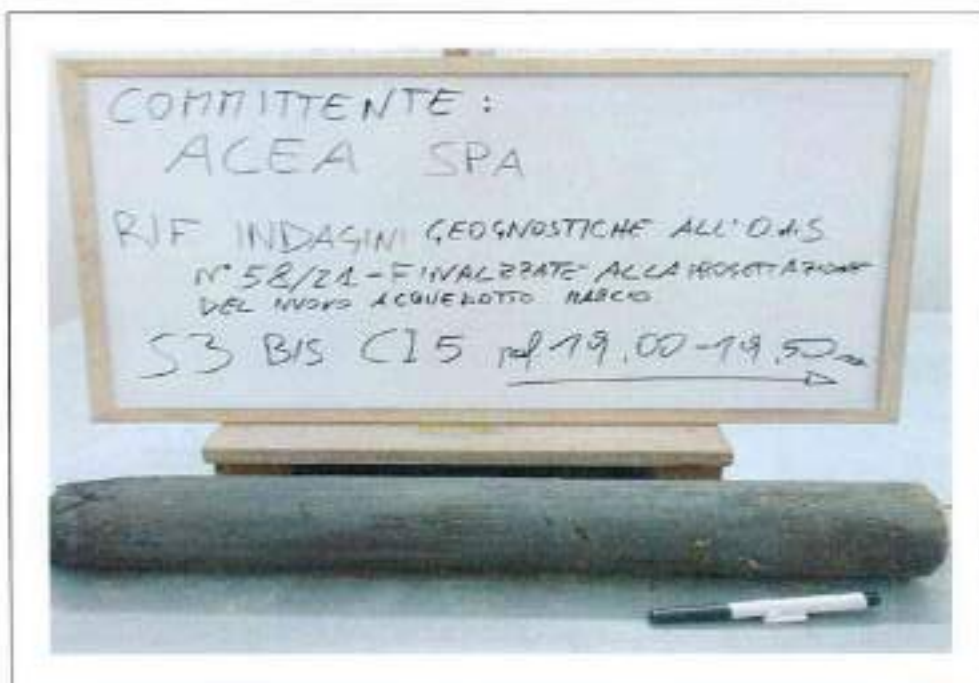 COMMITTENTE :
ACEA SPA
RIF INDAGINI GEOGNOSTICHE ALL'O.d.S
N° 58/21 - FINALIZZATE ALLA PROGETTAZIONE
DEL NUOVO ACQUEDOTTO MARCIO
S3 BIS CI5 prof 19.00-19.50 m